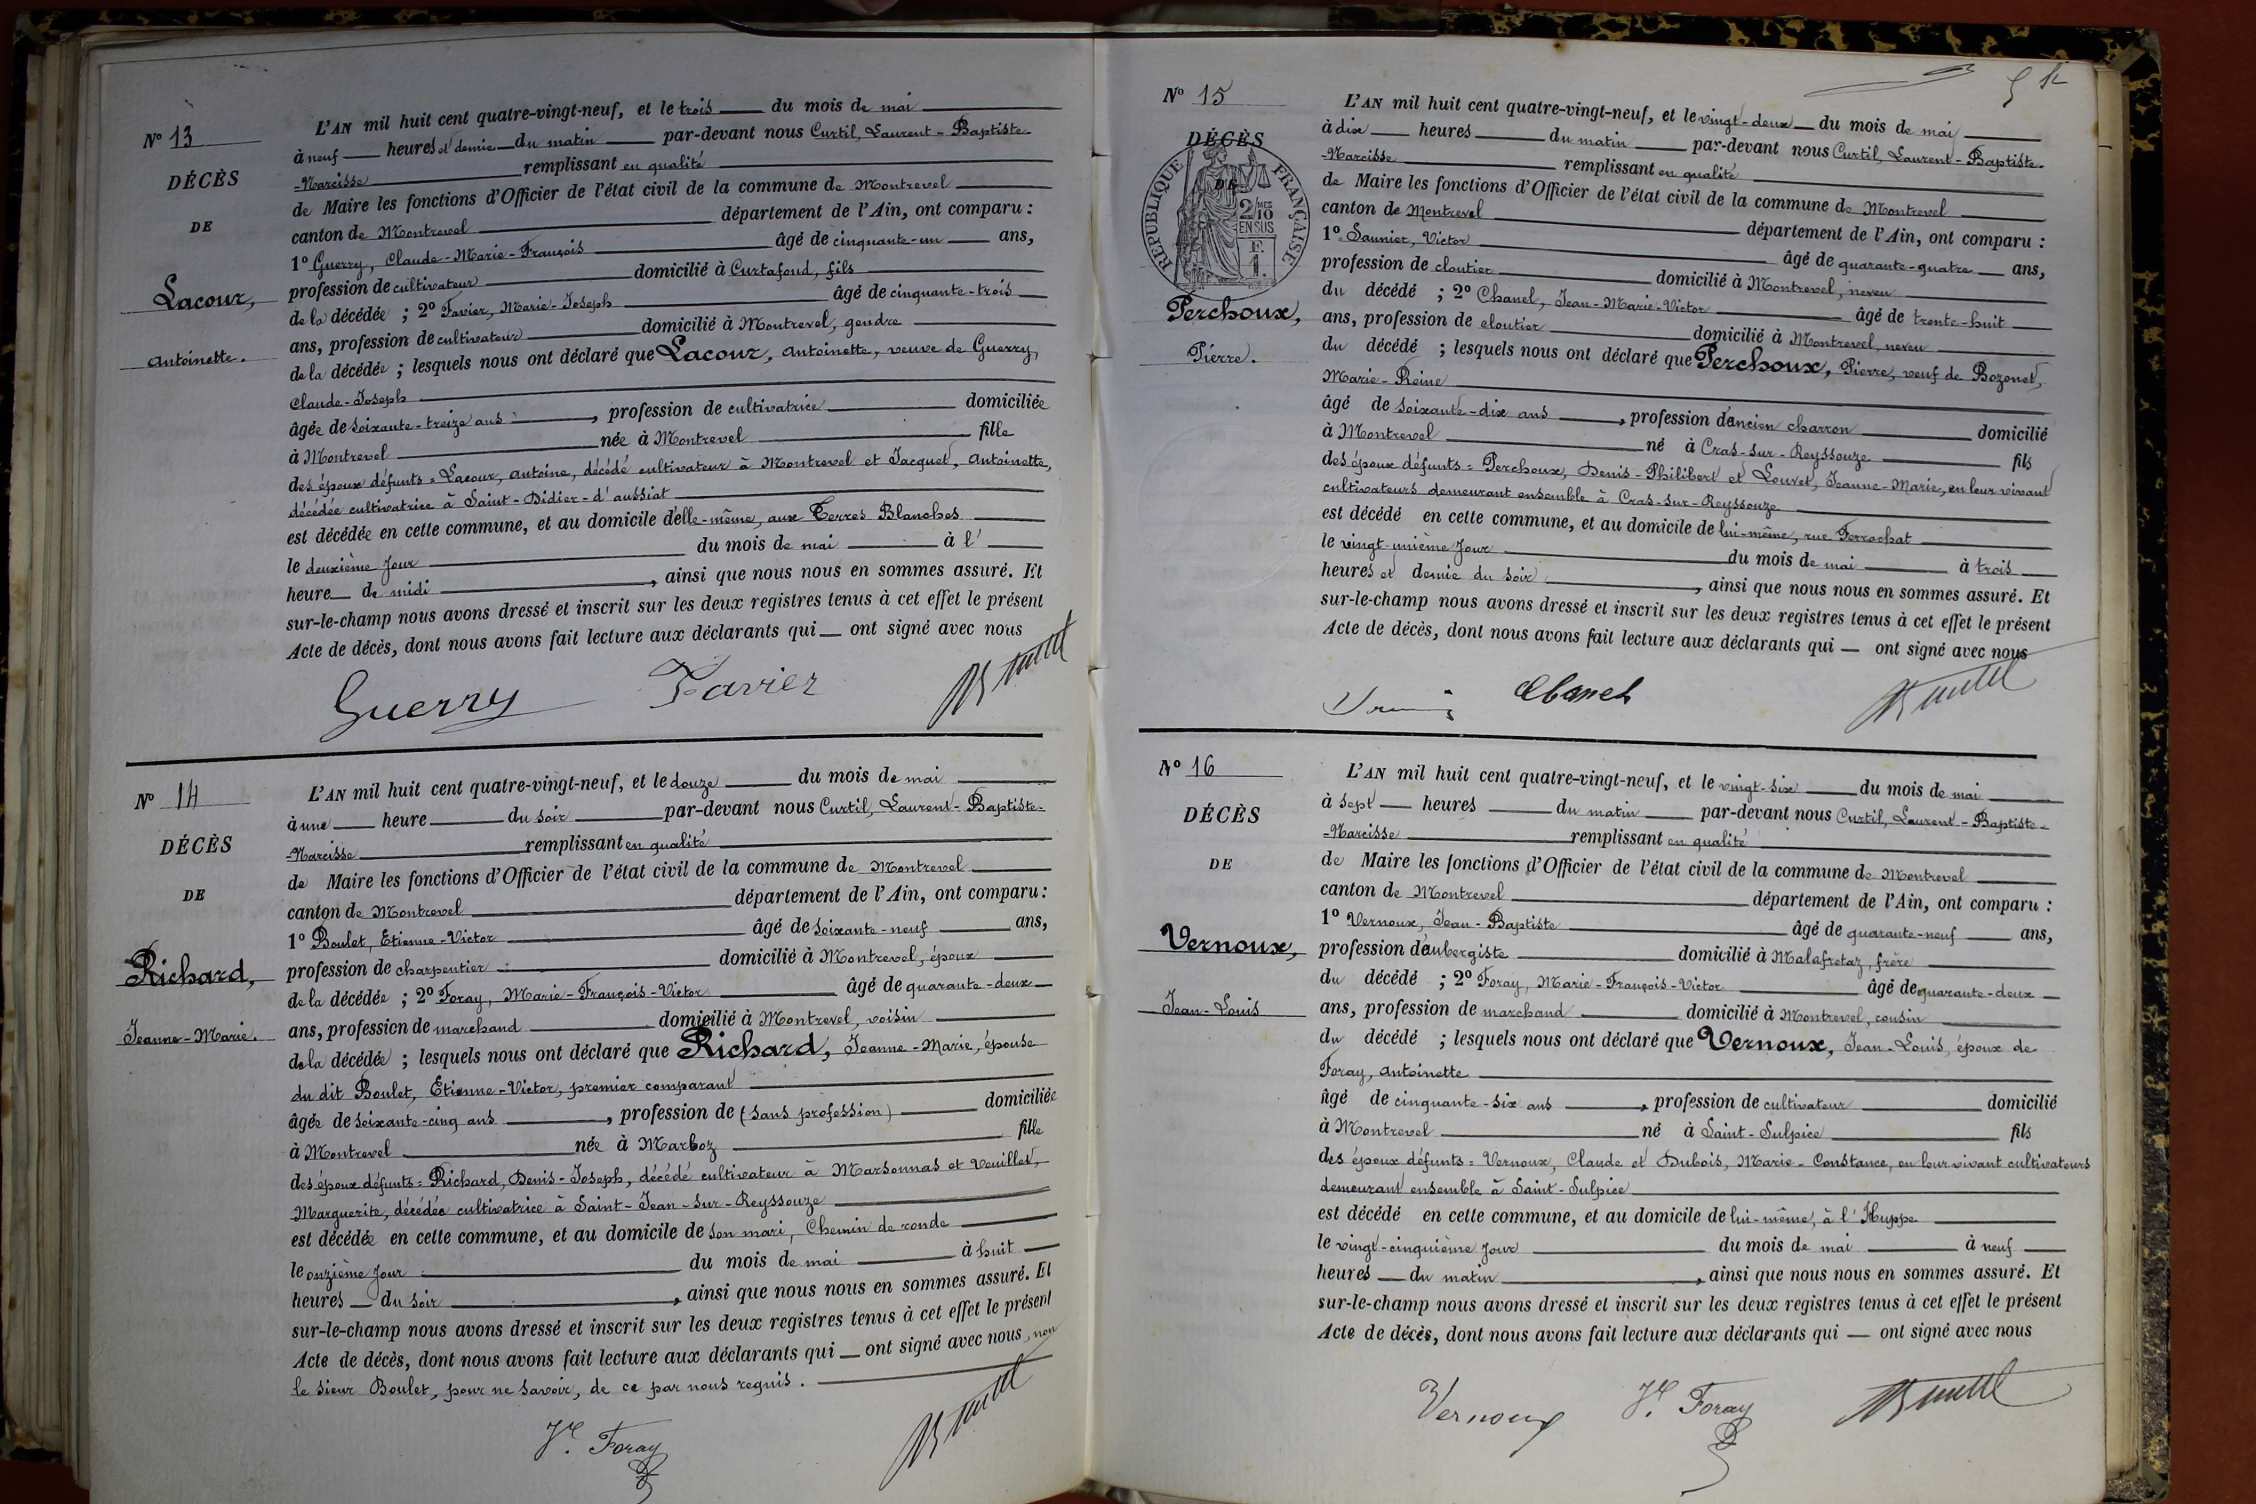 N° 13
DÉCÈS
DE
Lacour,
Antoinette.
L'AN mil huit cent quatre-vingt-neuf, et le trois du mois de mai
à neuf heures et demie du matin par-devant nous Curtil, Laurent-Baptiste-
-Narcisse remplissant en qualité
de Maire les fonctions d'Officier de l'état civil de la commune de Montrevel
canton de Montrevel département de l'Ain, ont comparu :
1° Guerry, Claude-Marie-François âgé de cinquante-un ans,
profession de cultivateur domicilié à Curtafond, fils
de la décédée ; 2° Favier, Marie-Joseph âgé de cinquante-trois
ans, profession de cultivateur domicilié à Montrevel, gendre
de la décédée ; lesquels nous ont déclaré que Lacour, Antoinette, veuve de Guerry,
Claude-Joseph
âgée de soixante-treize ans, profession de cultivatrice domiciliée
à Montrevel née à Montrevel fille
des époux défunts = Lacour, Antoine, décédé cultivateur à Montrevel et Jacquet, Antoinette,
décédée cultivatrice à Saint-Didier-d'aussiat
est décédée en cette commune, et au domicile d'elle-même, aux Terres Blanches
le deuxième jour du mois de mai à l'
heure de midi, ainsi que nous nous en sommes assuré. Et
sur-le-champ nous avons dressé et inscrit sur les deux registres tenus à cet effet le présent
Acte de décès, dont nous avons fait lecture aux déclarants qui ont signé avec nous
Guerry Favier
N° 14
DÉCÈS
DE
Richard,
Jeanne-Marie.
L'AN mil huit cent quatre-vingt-neuf, et le douze du mois de mai
à une heure du soir par-devant nous Curtil, Laurent-Baptiste-
-Narcisse remplissant en qualité
de Maire les fonctions d'Officier de l'état civil de la commune de Montrevel
canton de Montrevel département de l'Ain, ont comparu :
1° Boulet, Etienne-Victor âgé de soixante-neuf ans,
profession de charpentier domicilié à Montrevel, époux
de la décédée ; 2° Foray, Marie-François-Victor âgé de quarante-deux
ans, profession de marchand domicilié à Montrevel, voisin
de la décédée ; lesquels nous ont déclaré que Richard, Jeanne-Marie, épouse
du dit Boulet, Etienne-Victor, premier comparant
âgée de soixante-cinq ans, profession de (sans profession) domiciliée
à Montrevel née à Marboz fille
des époux défunts = Richard, Denis-Joseph, décédé cultivateur à Marsonnas et Veuillet,
Marguerite, décédée cultivatrice à Saint-Jean-sur-Reyssouze
est décédée en cette commune, et au domicile de son mari, Chemin de ronde
le onzième jour du mois de mai à huit
heures du soir, ainsi que nous nous en sommes assuré. Et
sur-le-champ nous avons dressé et inscrit sur les deux registres tenus à cet effet le présent
Acte de décès, dont nous avons fait lecture aux déclarants qui ont signé avec nous, non
le sieur Boulet, pour ne savoir, de ce par nous requis.
Foray
N° 15
DÉCÈS
DE
RÉPUBLIQUE FRANÇAISE
2/10 MES
EN SUS
F.
1.
Perchoux,
Pierre.
L'AN mil huit cent quatre-vingt-neuf, et le vingt-deux du mois de mai
à dix heures du matin par-devant nous Curtil, Laurent-Baptiste-
-Narcisse remplissant en qualité
de Maire les fonctions d'Officier de l'état civil de la commune de Montrevel
canton de Montrevel département de l'Ain, ont comparu :
1° Saunier, Victor âgé de quarante-quatre ans,
profession de cloutier domicilié à Montrevel, neveu
du décédé ; 2° Chanel, Jean-Marie-Victor âgé de trente-huit
ans, profession de cloutier domicilié à Montrevel, neveu
du décédé ; lesquels nous ont déclaré que Perchoux, Pierre, veuf de Bozonet,
Marie-Reine
âgé de soixante-dix ans, profession d'ancien charron domicilié
à Montrevel né à Cras-sur-Reyssouze fils
des époux défunts = Perchoux, Denis-Philibert et Louvet, Jeanne-Marie, en leur vivant
cultivateurs demeurant ensemble à Cras-sur-Reyssouze
est décédé en cette commune, et au domicile de lui-même, rue Ferrachat
le vingt-unième jour du mois de mai à trois
heures et demie du soir, ainsi que nous nous en sommes assuré. Et
sur-le-champ nous avons dressé et inscrit sur les deux registres tenus à cet effet le présent
Acte de décès, dont nous avons fait lecture aux déclarants qui ont signé avec nous
Chanel
N° 16
DÉCÈS
DE
Vernoux,
Jean-Louis
L'AN mil huit cent quatre-vingt-neuf, et le vingt-six du mois de mai
à sept heures du matin par-devant nous Curtil, Laurent-Baptiste-
-Narcisse remplissant en qualité
de Maire les fonctions d'Officier de l'état civil de la commune de Montrevel
canton de Montrevel département de l'Ain, ont comparu :
1° Vernoux, Jean-Baptiste âgé de quarante-neuf ans,
profession d'aubergiste domicilié à Malafretaz, frère
du décédé ; 2° Foray, Marie-François-Victor âgé de quarante-deux
ans, profession de marchand domicilié à Montrevel, cousin
du décédé ; lesquels nous ont déclaré que Vernoux, Jean-Louis, époux de
Foray, Antoinette
âgé de cinquante-six ans, profession de cultivateur domicilié
à Montrevel né à Saint-Sulpice fils
des époux défunts = Vernoux, Claude et Dubois, Marie-Constance, en leur vivant cultivateurs
demeurant ensemble à Saint-Sulpice
est décédé en cette commune, et au domicile de lui-même, à l'Huppe
le vingt-cinquième jour du mois de mai à neuf
heures du matin, ainsi que nous nous en sommes assuré. Et
sur-le-champ nous avons dressé et inscrit sur les deux registres tenus à cet effet le présent
Acte de décès, dont nous avons fait lecture aux déclarants qui ont signé avec nous
Vernoux Foray